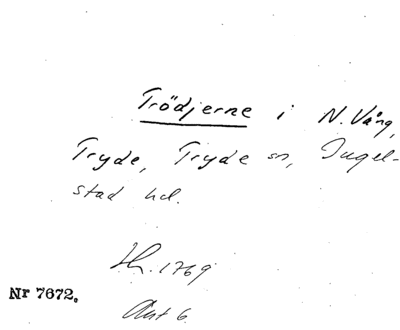 Trödjerne i N. Vång,
Tryde, Tryde sn, Ingel-
stad hd.
Sk. 1769
Nr 7672.
Akt 6